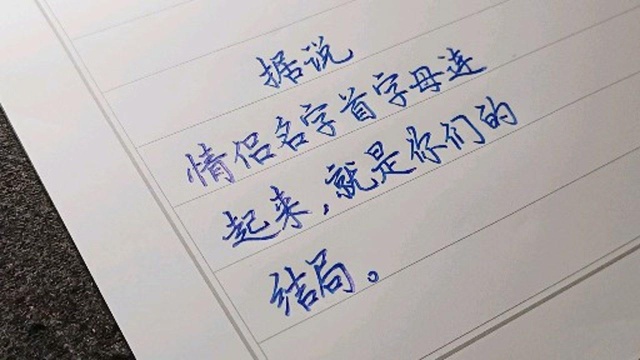 据说
情侣名字首字母连
起来，就是你们的
结局。